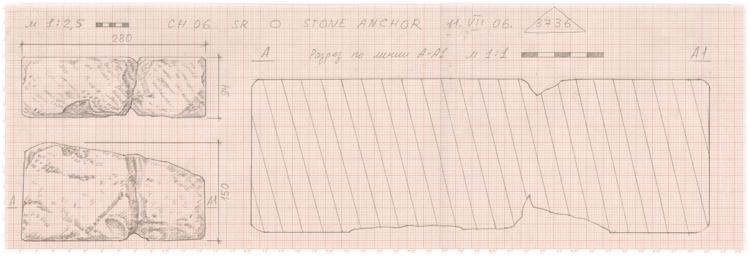 м 1:2,5 CH 06 SR O STONE ANCHOR 11. VII 06. 3736
280
A Разрез по линии A-A1 м 1:1 A1
94
150
A A1